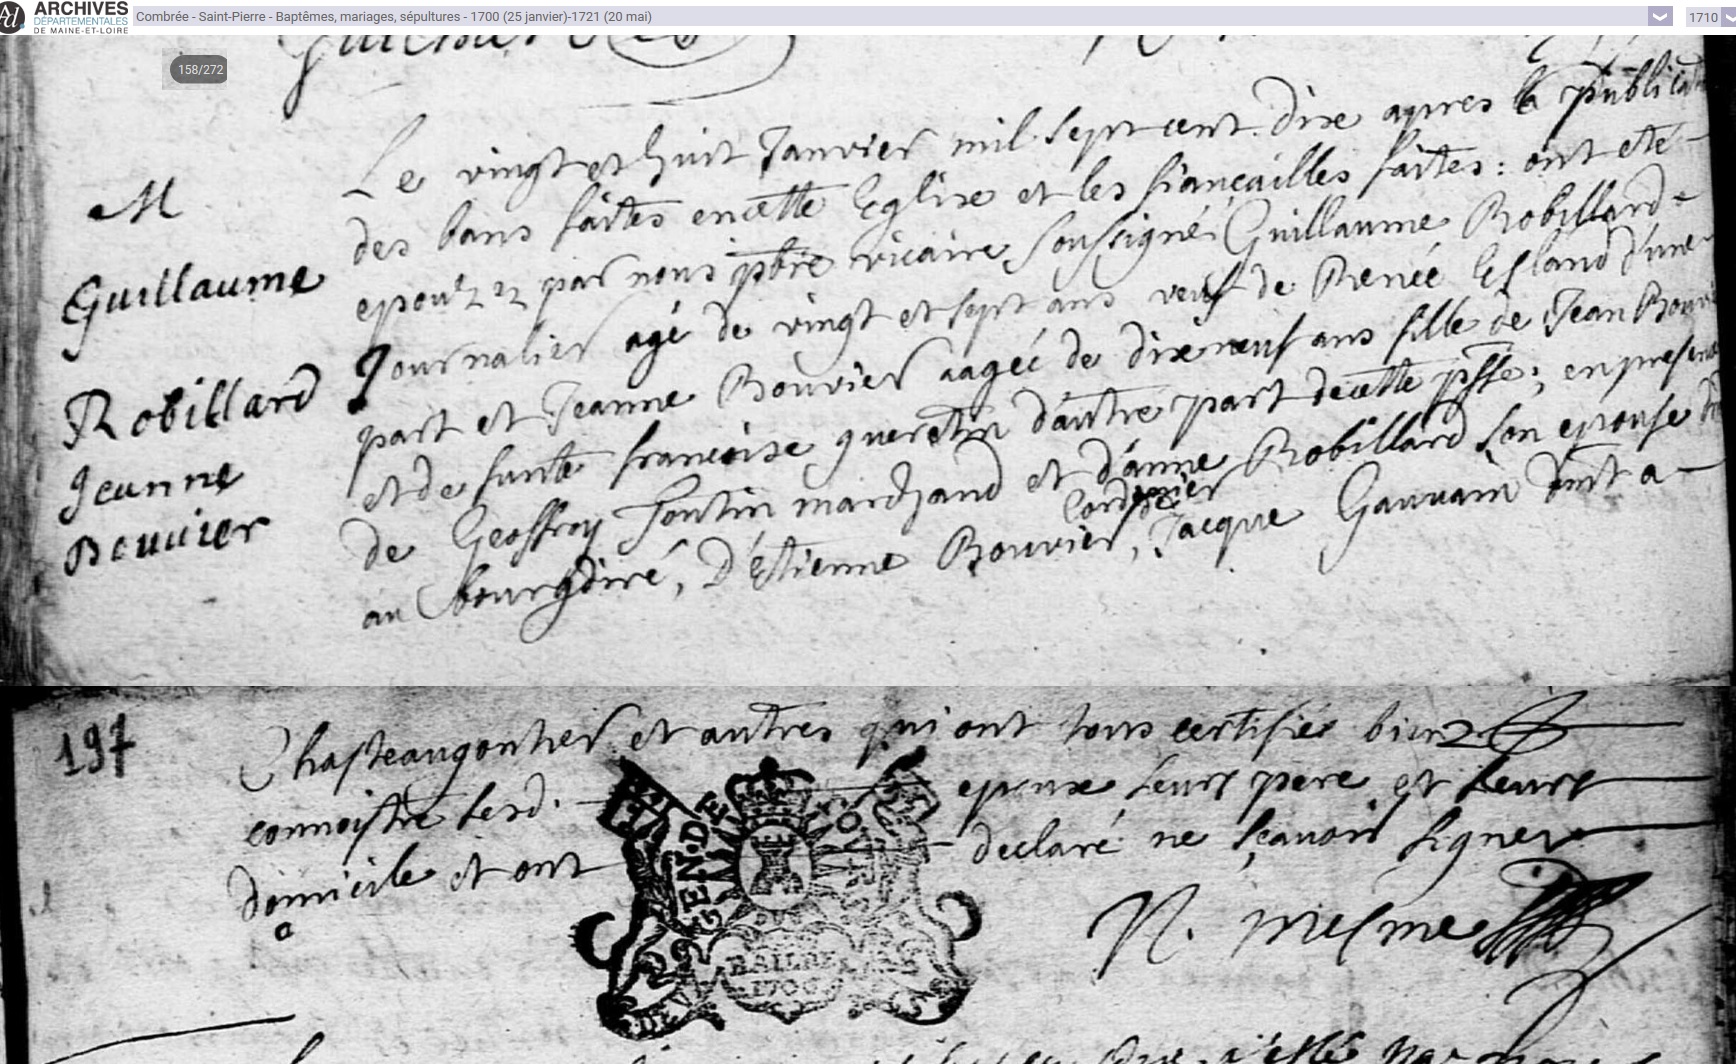 ARCHIVES
DÉPARTEMENTALES
DE MAINE-ET-LOIRE
Combrée - Saint-Pierre - Baptêmes, mariages, sépultures - 1700 (25 janvier)-1721 (20 mai)
1710
158/272
Le vingt et huit Janvier mil sept cent dix apres la publicat
des bans faites en cette Eglise et les fiançailles faites : ont eté
epousez par nous pbre vicaire soussigné Guillaume Robillard
Journalier agé de vingt et sept ans veuf de Renée d'une
part et Jeanne Bouvier aagée de dixneuf ans fille de Jean Bouvi
et de funte francoise quer̃etin d'autre part de cette psse ; en presen
de Geoffroy fontin marchand et d'anne Robillard son epouse
cordier
au bourgdiré, d'Etienne Bouvier, Jacque Gauvain dmt a
M
Guillaume
Robillard
Jeanne
Bouuier
197
Chasteaugontier et autres qui ont tous certifié bien
connoistre lesd. epoux leurs pere et leurs
domicile et ont declaré ne sçavoir signer
a
GEN. DE
BAILDE
1706
N. mesme